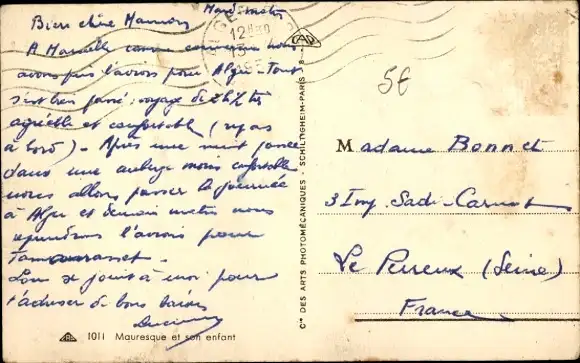 Mardi matin
Bien chère Maman
A Marseille comme convenu nous
avons pris l'avion pour Alger. Tout
s'est bien passé; voyage de 2h½ très
agréable et confortable (repas
à bord). Après une nuit passée
dans une auberge moins confortable
nous allons passer la journée
à Alger et demain matin nous
reprendrons l'avion pour
Tamanrasset.
se joint à moi pour
t'adresser de bons baisers
Lucienne
1011 Mauresque et son enfant
Cie DES ARTS PHOTOMÉCANIQUES - SCHILTIGHEIM-PARIS - 8
CAP
12H
5€
Madame Bonnet
3 Imp. Sadi-Carnot
Le Perreux (Seine)
France